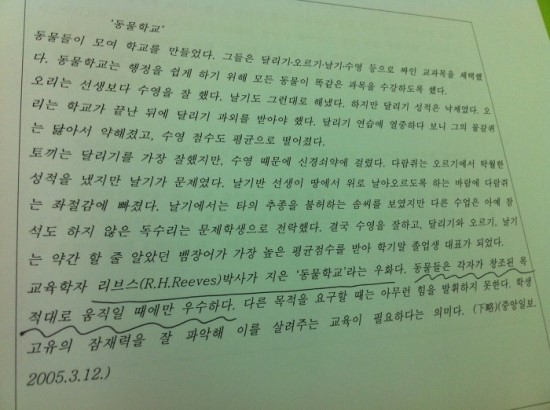 '동물학교'
동물들이 모여 학교를 만들었다. 그들은 달리기·오르기·날기·수영 등으로 짜인 교과목을 채택했
다. 동물학교는 행정을 쉽게 하기 위해 모든 동물이 똑같은 과목을 수강하도록 했다.
오리는 선생보다 수영을 잘 했다. 날기도 그런대로 해냈다. 하지만 달리기 성적은 낙제였다. 오
리는 학교가 끝난 뒤에 달리기 과외를 받아야 했다. 달리기 연습에 열중하다 보니 그의 물갈퀴
는 닳아서 약해졌고, 수영 점수도 평균으로 떨어졌다.
토끼는 달리기를 가장 잘했지만, 수영 때문에 신경쇠약에 걸렸다. 다람쥐는 오르기에서 탁월한
성적을 냈지만 날기가 문제였다. 날기반 선생이 땅에서 위로 날아오르도록 하는 바람에 다람쥐
는 좌절감에 빠졌다. 날기에서는 타의 추종을 불허하는 솜씨를 보였지만 다른 수업은 아예 참
석도 하지 않은 독수리는 문제학생으로 전락했다. 결국 수영을 잘하고, 달리기와 오르기, 날기
는 약간 할 줄 알았던 뱀장어가 가장 높은 평균점수를 받아 학기말 졸업생 대표가 되었다.
교육학자 리브스(R.H.Reeves)박사가 지은 '동물학교'라는 우화다. 동물들은 각자가 창조된 목
적대로 움직일 때에만 우수하다. 다른 목적을 요구할 때는 아무런 힘을 발휘하지 못한다. 학생
고유의 잠재력을 잘 파악해 이를 살려주는 교육이 필요하다는 의미다. (下略)(중앙일보,
2005.3.12.)